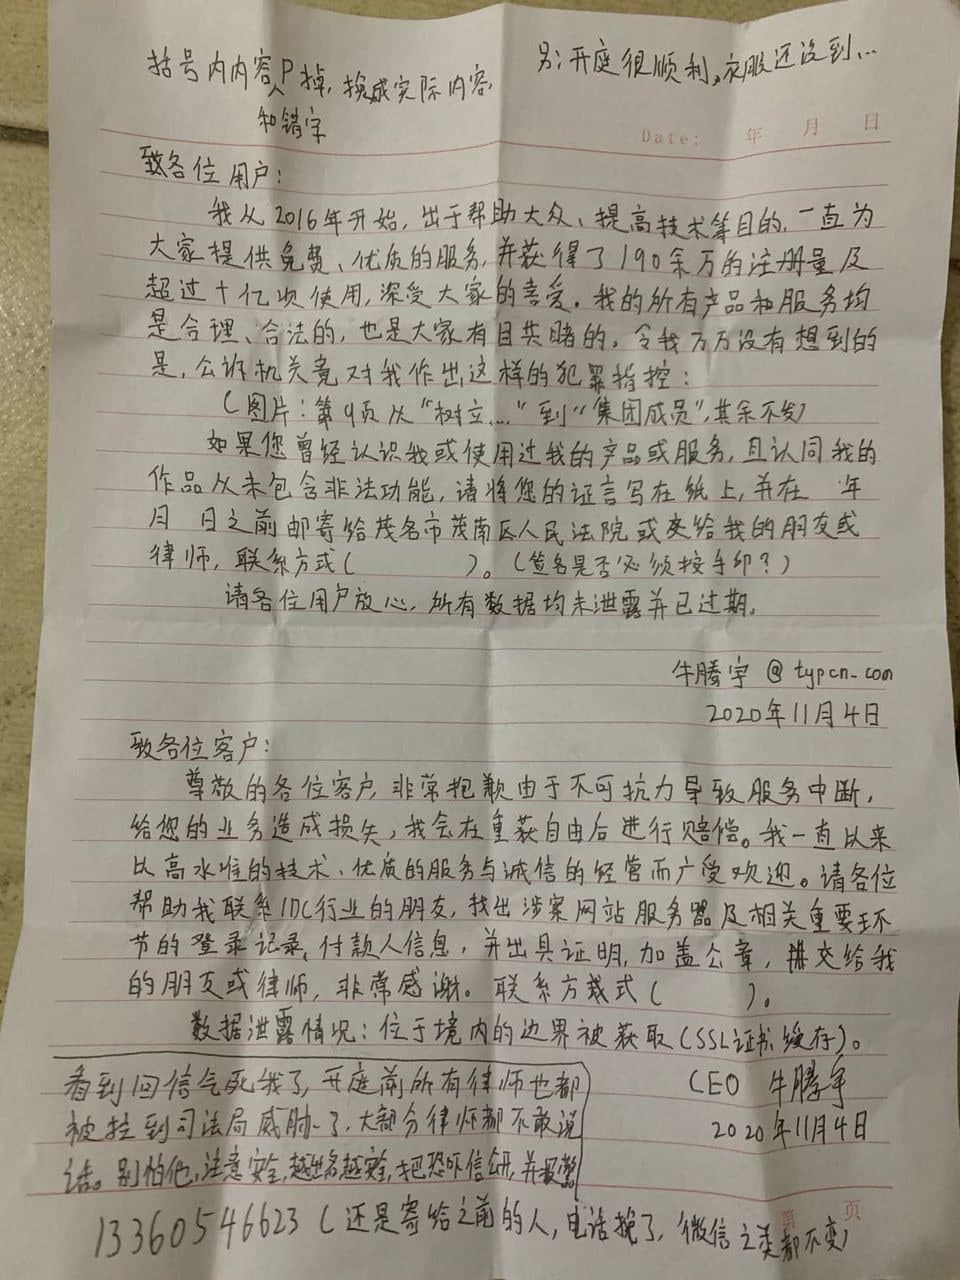 括号内内容P掉,换成实际内容,
和错字
另:开庭很顺利,衣服还没到…
Date: 年 月 日
致各位用户:
我从2016年开始,出于帮助大众、提高技术等目的,一直为
大家提供免费、优质的服务,并获得了190余万的注册量及
超过十亿次使用,深受大家的喜爱。我的所有产品和服务均
是合理、合法的,也是大家有目共睹的。令我万万没有想到的
是,公诉机关竟对我作出这样的犯罪指控:
(图片:第9页从“树立...”到“集团成员”,其余不发)
如果您曾经认识我或使用过我的产品或服务,且认同我的
作品从未包含非法功能,请将您的证言写在纸上,并在 年
月 日之前邮寄给茂名市茂南区人民法院或交给我的朋友或
律师,联系方式( )。(签名是否必须按手印?)
请各位用户放心,所有数据均未泄露并已过期。
牛腾宇@typcn.com
2020年11月4日
致各位客户:
尊敬的各位客户,非常抱歉由于不可抗力导致服务中断,
给您的业务造成损失,我会在重获自由后进行赔偿。我一直以来
以高水准的技术、优质的服务与诚信的经营而广受欢迎。请各位
帮助我联系IDC行业的朋友,找出涉案网站服务器及相关重要环
节的登录记录、付款人信息,并出具证明,加盖公章,提交给我
的朋友或律师,非常感谢。联系方式( )。
数据泄露情况:位于境内的边界被获取(SSL证书缓存)。
CEO 牛腾宇
2020年11月4日
看到回信气死我了,开庭前所有律师也都
被拉到司法局威胁了,大部分律师都不敢说
话。别怕他,注意安全,越出名越安全,把恐吓信公开,并报警
13360546623(还是寄给之前的人,电话换了,微信之类都不变)
第 页